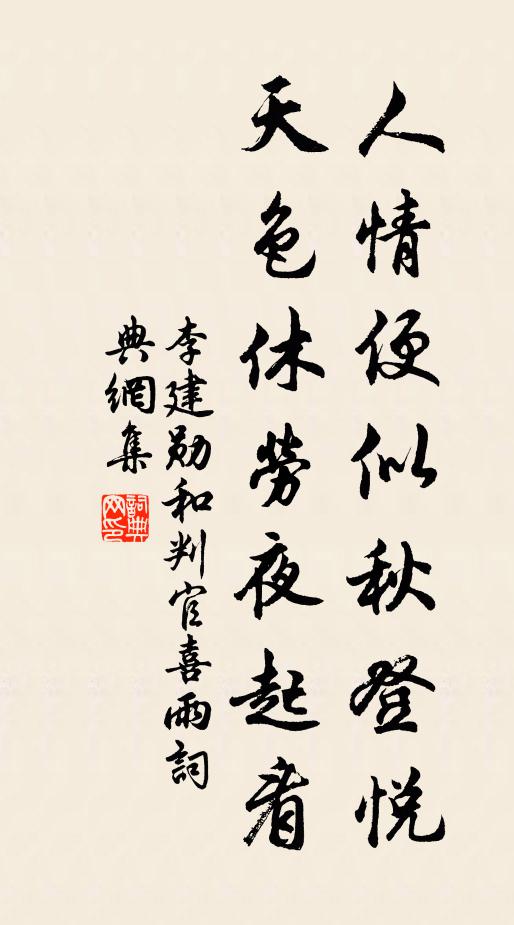 人情便似秋登悦
天色休劳夜起看
李建勋和判官喜雨詞
典網集
詞典网印